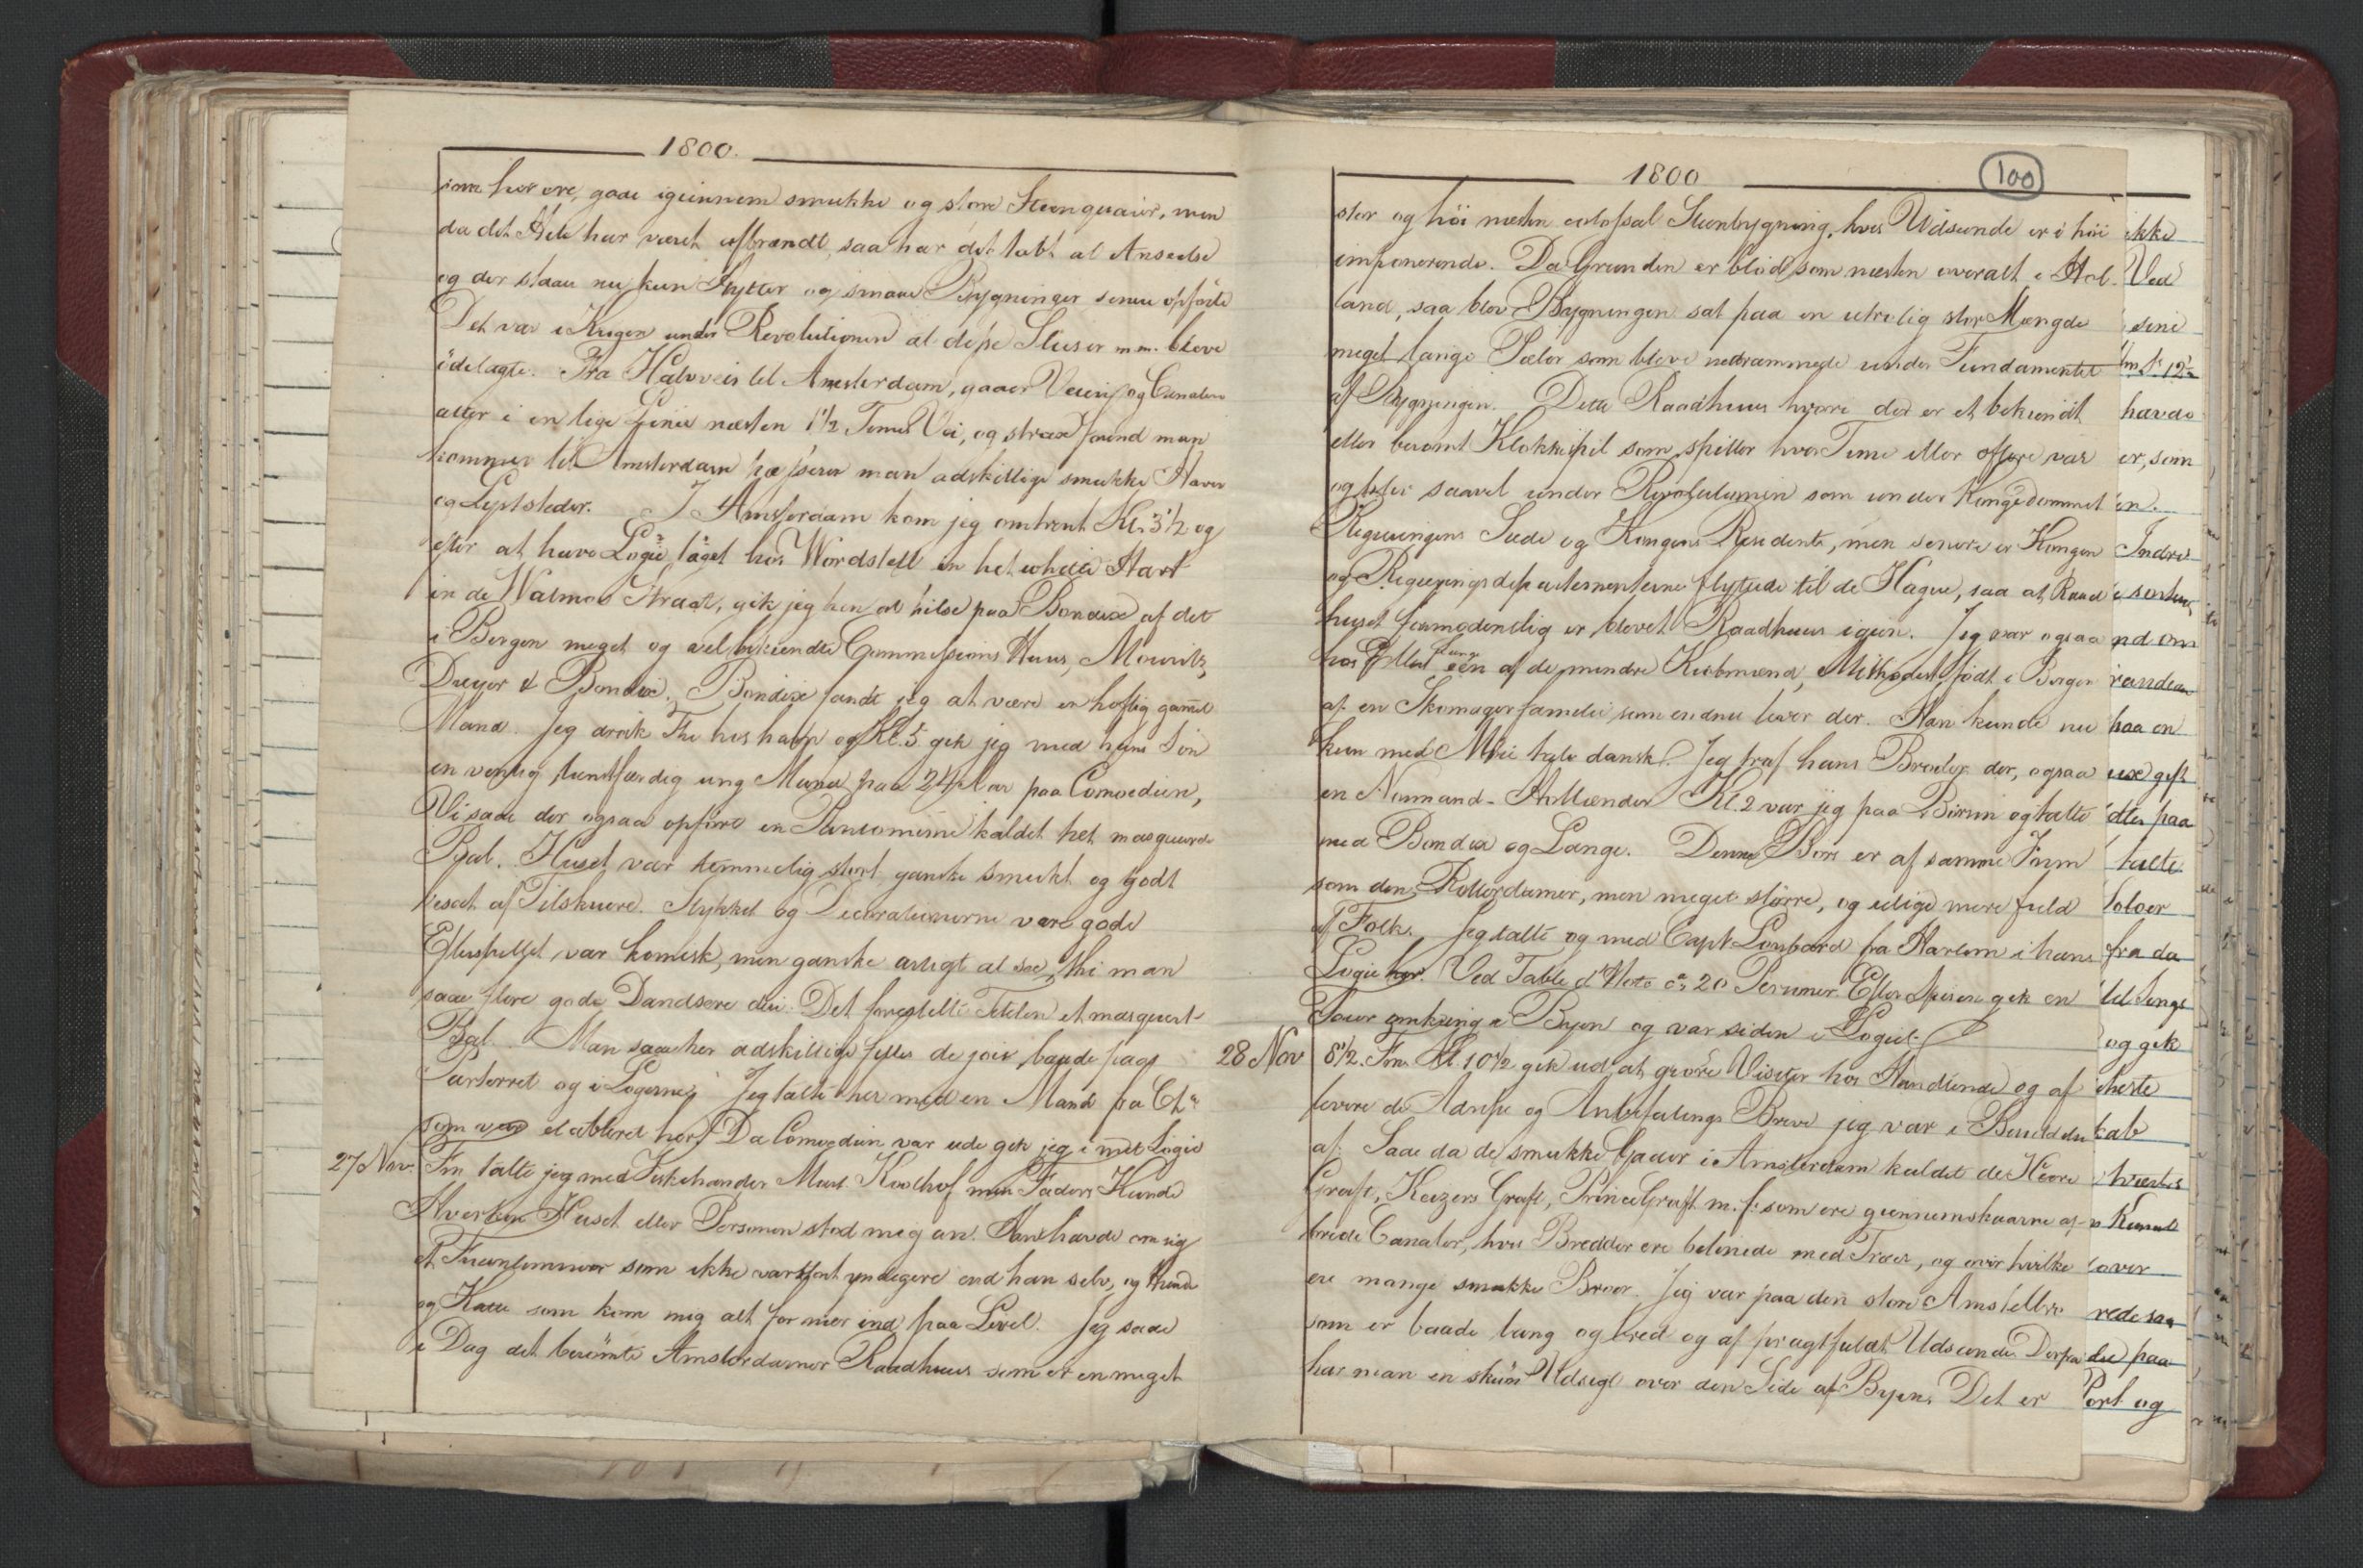 1800.
som her ere, gaae igiennem smukke og store Steenquaier, men
da det Hele har været afbrændt, saa har det tabt al Anseelse
og der staae nu kun Hytter og smaae Bygninger senere opförte
Det var i Krigen under Revolutionen at disse Sluser m.m. bleve
ödelagte. Fra Halvveis til Amsterdam, gaaer Veien og Canalen
atter i en lige Linie næsten 1½ Times Vei, og strax forend man
kommer til Amsterdam passerer man adskillige smukke Haver
og Lyststeder. I Amsterdam kom jeg omtrent Kl. 3½ og
efter at have Logie taget hos Wordstell in het white Hart
in de Warmos Straat, gik jeg hen at hilse paa Bondix af det
i Bergen meget og vel bekiendte Commissions Huus, Mouritz,
Dreyer & Bondix. Bondix fandt jeg at være en hoflig gaml
Mand. Jeg drak The hos ham og Kl. 5 gik jeg med hans Sön
en venlig kunstfærdig ung Mand paa 24 Aar paa Comoedien,
Vi saae der ogsaa opföre en Pantomime kaldet het masqueerde
Bal. Huset var temmelig stort ganske smukt og godt
besat af Tilskuere. Stykket og Decorationerne vare gode
Efterspillet var komisk, men ganske artigt at see, thi man
saae flere gode Dandsere deri. Det forestillte Titelen et masqueret
Bal. Man saae her adskillige filles de joie baade paa
Parterret og i Logerne. Jeg talte her med en Mand fra Chr
som var etableret her. Da Comoedien var ude gik jeg i mit Logie
27 Nov. Fm talte jeg med Fiskehandler Mart. Koolhof min Faders Kunde
Hverken Huset eller Personen stod meg an. Han havde om sig
et Fruentimmer som ikke var stort yndigere end han selv, og Hunde
og Katte som kom mig alt for nær ind paa Livet. Jeg saae
i Dag det berömte Amsterdamer Raadhuus som er en meget
1800
100
stor og höi næsten colossal Steenbygning, hvis Udseende er i höi
imponerende. Da Grunden er blöd som næsten overalt i Hol-
land, saa blev Bygningen sat paa en utrolig stor Mængde
meget lange Pæler som bleve nedrammede under Fundamentet
af Bygningen. Dette Raadhuus hvore der er et bekiendt
eller beromt Klokkespil som spiller hver Time eller oftere var
og bler saavel under Revolutionen som under Kongedommet
Regieringens Sæde og Kongens Residents, men senere er Kongen
og Regieringsdepartementerne flyttede til de Hague, saa at Raad
huset formodentlig er blevet Raadhuus igien. Jeg var ogsaa
hos een af de mindre Kiobmænd, födt i Bergen
af en Skomagerfamilie som endnu lever der. Han kunde nu
kun med Möie tale dansk. Jeg traf hans Broder der, ogsaa
en Normand-Hollænder Kl. 2 var jeg paa Börsen og talte
med Bondix og Lange. Denne Börs er af samme Form
som den Rotterdamer, men meget större, og uligee mere fuld
af Folk. Jeg talte og med Capt Lombard fra Harlem i hans
Logie her. Ved Table d'Hote ca 20 Personer. Efter Spisen gik en
Tour omkring i Byen og var siden i Logiet.
28 Nov 8½. Fm. Kl 10½ gik ud at giöre Visiter hos Handlende og af
levere de Adresse og Anbefalings Breve jeg var i Besiddelse
af. Saae da de smukke Gader i Amsterdam kaldet de Heere
Graft, Keizers Graft, Prince Graft m. f. som ere giennemskaarne af
brede Canaler, hvis Bredder ere belinede med Træer, og over hvilke
ere mange smukke Broer. Jeg var paa den store Amstelbro
som er baade lang og bred og af pragtfuldt Udseende. Derfra
har man en skiön Udsigt over den Side af Byen. Det er
ikke
Ved
sine
12½
havde
er, som
en.
Indre
nd om
paa en
gift
dter paa
talte
Soloer
fra da
til Senge
og gik
heste
kab
over
rede saa
paa
Port og